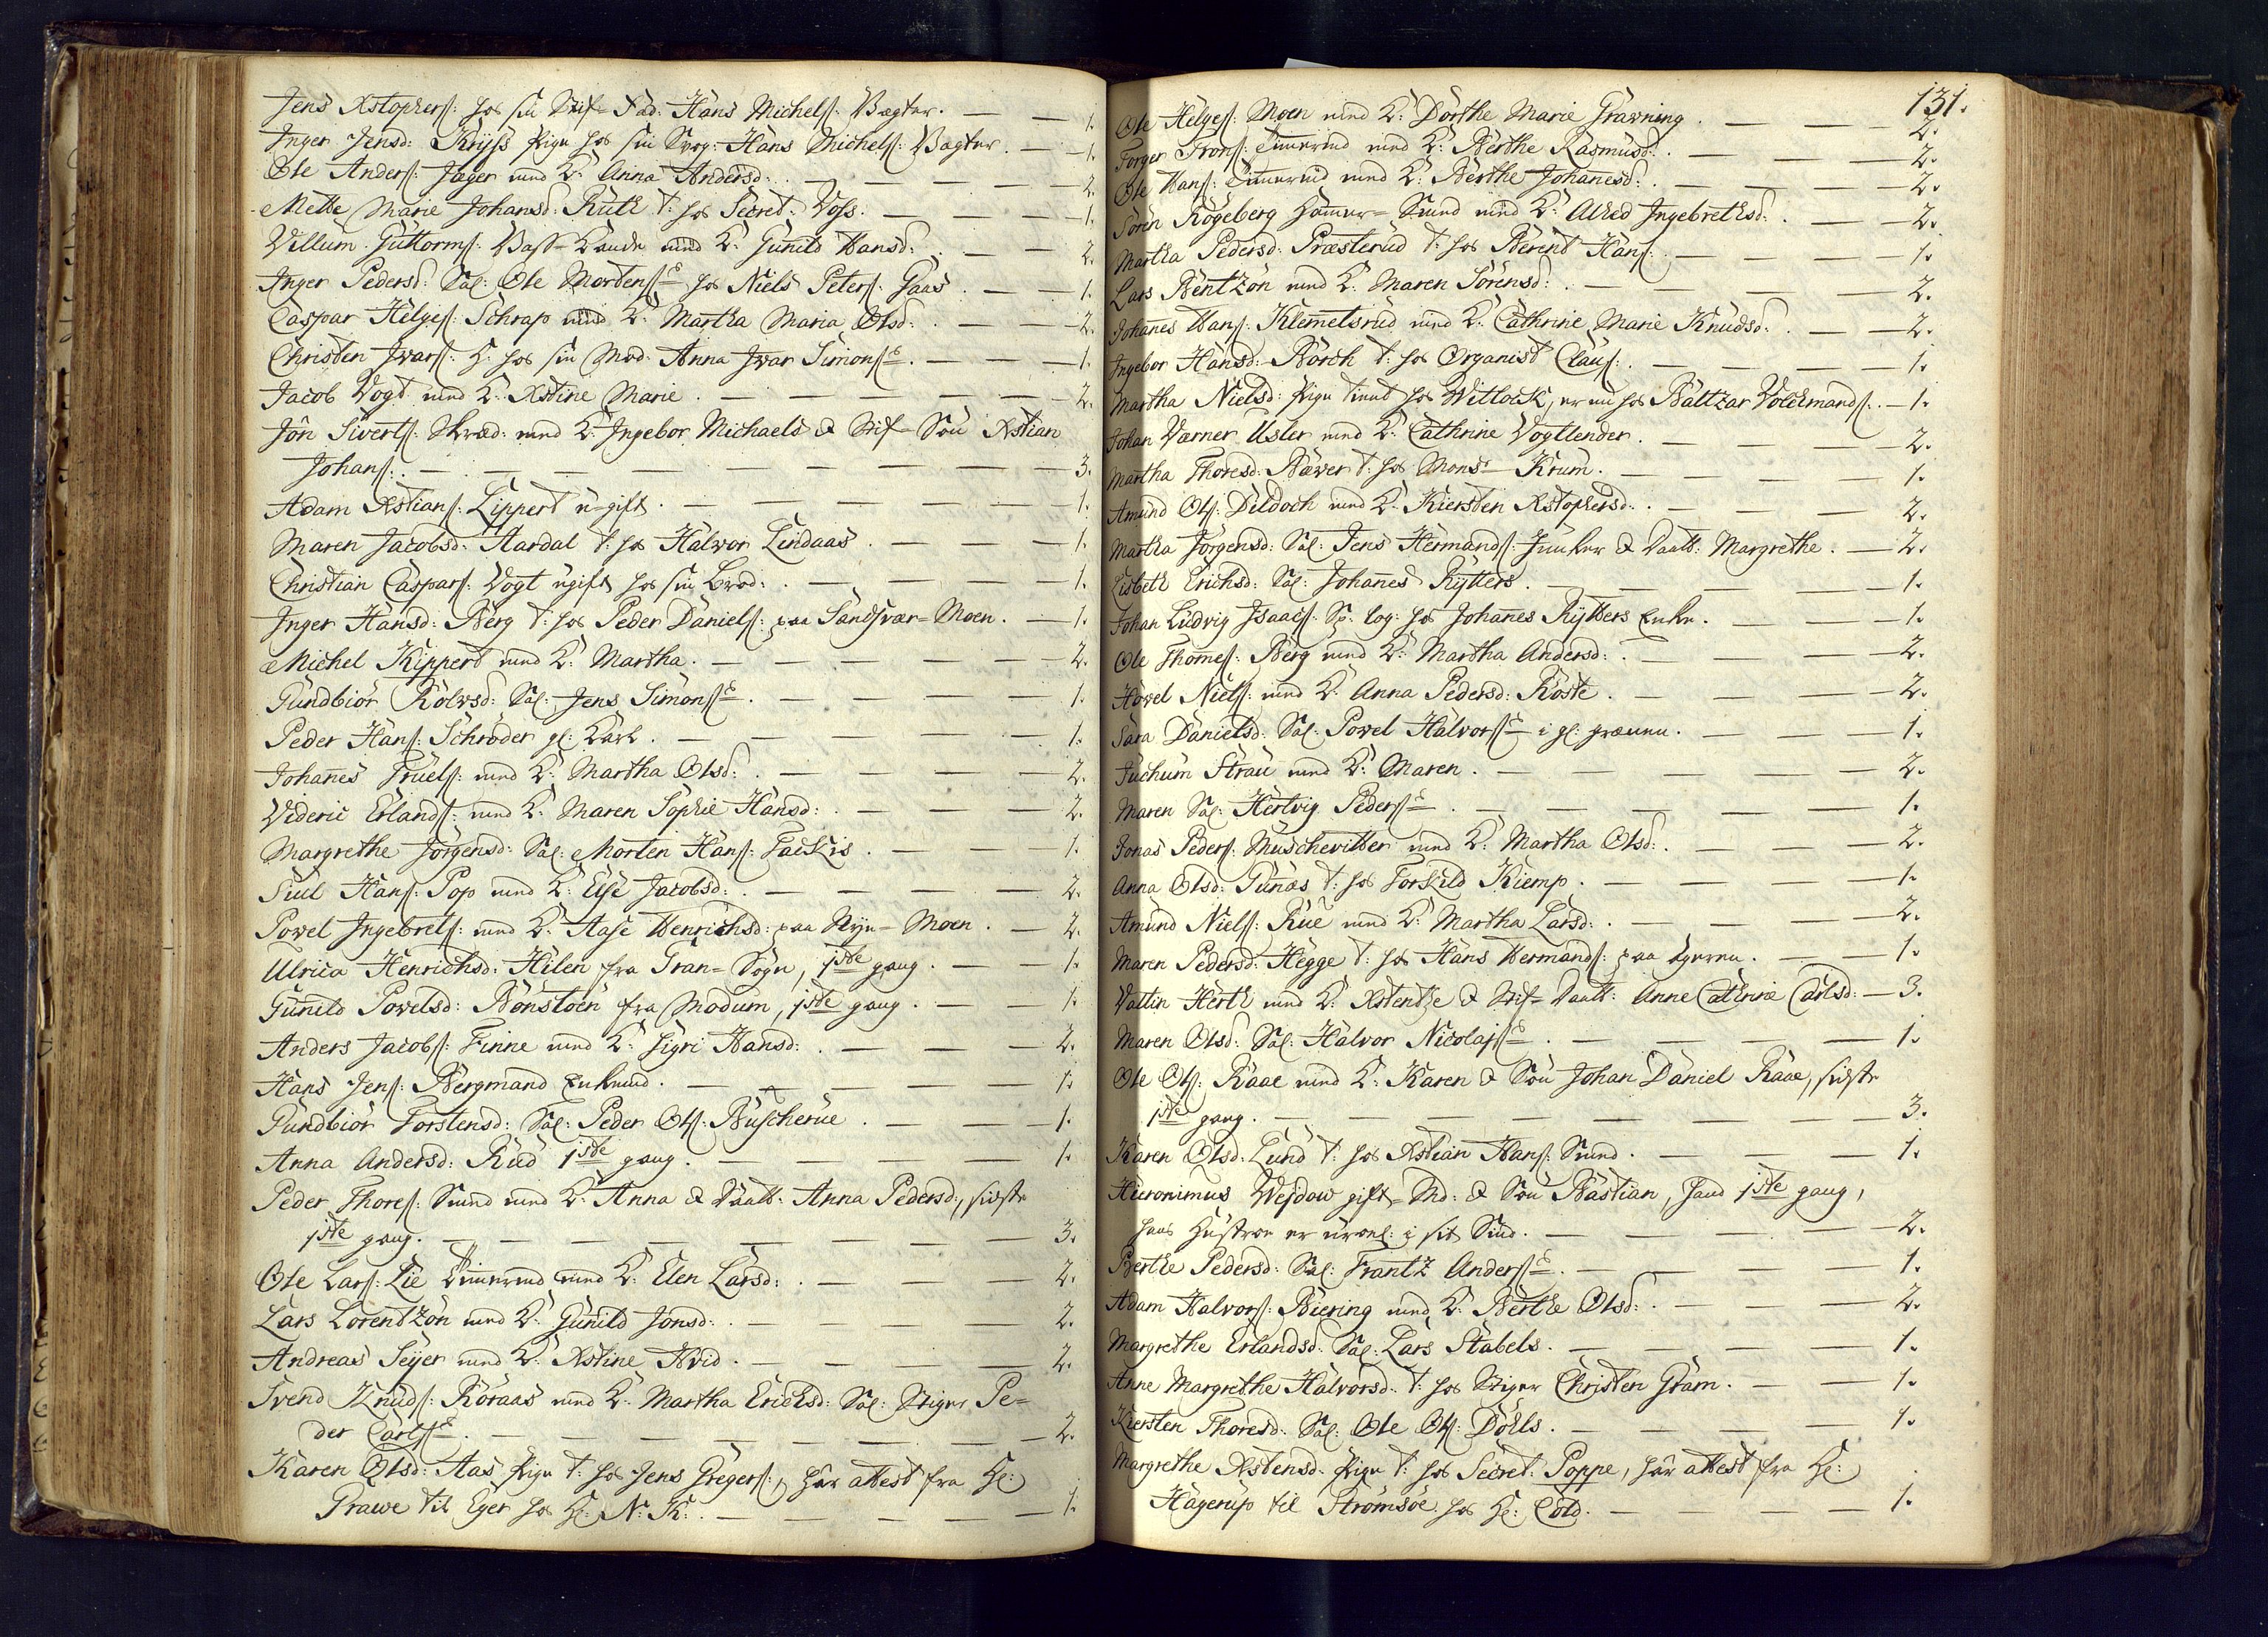 Jens Xstophers: hos sin Stif-Fad: Hans Michels: Vægter. — — 1.
Inger Jensd: Kryss Pige hos sin Svog: Hans Michels: Vægter. — 1.
Ole Anders: Jæger med K: Anna Andersd: — — 2.
Mette Marie Johansd: Ruth t: hos Secret: Voss. — — 1.
Villum Guttorms: med K: Gunild Hansd: — — 2.
Inger Pedersd: Sal: Ole Mortens: hos Niels Peters: Gaas. — 1.
Caspar Helges: Schrap med K: Martha Maria Olsd: — 2.
Christen Ivars: hos sin Mod: Anna Ivar Simons: — — 1.
Jacob Vogt med K: Xstine Marie. — — 2.
Jon Siverts: Skræd: med K: Ingebor Michaels & Stif-Søn Xstian
Johans: — — 3.
Adam Xstians: Lippert u-gift. — — 1.
Maren Jacobsd: Aardal t: hos Halvor Lindaas. — — 1.
Christian Caspars: Vogt ugift hos sin Brod: — — 1.
Inger Hansd: Berg t: hos Peder Daniels: paa Sandsvær-Moen. — 1.
Michel Kippert med K: Martha. — — 2.
Gundbiør Rolvsd: Sal: Jens Simons: — — 1.
Peder Hans: Schrøder gl: Karl. — — 1.
Johannes Truels: med K: Martha Olsd: — — 2.
Videric Erlands: med K: Maren Sophie Hansd: — — 2.
Margrethe Jørgensd: Sal: Morten Hans: Fackis. — — 1.
Siul Hans: Pop med K: Else Jacobsd: — — 2.
Povel Ingebrets: med K: Aase Henrichsd: paa Moen. — 2.
Ulrica Henrichsd: Hilen fra Gran-Sogn, 1ste gang. — — 1.
Gunild Povelsd: Bønstoen fra Modum, 1ste gang. — — 1.
Anders Jacobs: Finne med K: Sigri Hansd: — — 2.
Hans Jens: Bergmand Enkemd. — — 1.
Gundbiør Torstensd: Sal: Peder Ols: Buscherue. — — 1.
Anna Andersd: Rud 1ste gang. — — 1.
Peder Thores: Smed med K: Anna & Daatt: Anna Pedersd:, sidste
1ste gang. — — 3.
Ole Lars: Lie Timmermd med K: Elen Larsd: — — 2.
Lars Lorentzøn med K: Gunild Jonsd: — — 2.
Andreas Seyer med K: Xstine Hvid. — — 2.
Svend Knuds: Røraas med K: Martha Erichsd: Sal: Stiger Pe-
der Carls: — — 2.
Karen Olsd: Aas Pige t: hos Jens Gregers:, har attest fra Hr:
Grawe til Eger hos Hr: N: K: — — 1.
131.
Ole Helges: Moen med K: Dorthe Marie Grawning. — — 2.
Torger Trons: Timmermd med K: Berthe Rasmusd: — — 2.
Ole Hans: Timmermd med K: Berthe Johannesd: — — 2.
Søren Rogeberg Hammer-Smed med K: Alhed Ingebrethsd: — 2.
Martha Pedersd: Præsterud t: hos Berent Hans: — — 1.
Lars Bentzøn med K: Maren Sørensd: — — 2.
Johannes Hans: Klemmetsrud med K: Cathrine Marie Knudsd: — 2.
Ingebor Hansd: Børch t: hos Organist Claus: — — 1.
Martha Nielsd: Pige tient hos Wittock, er nu hos Baltzar Volchmands: — 1.
Johan Værner Usler med K: Cathrine Vogtlender. — — 2.
Martha Thoresd: Bæver t: hos Monsr Krum. — — 1.
Amund Ols: Deldoch med K: Kiersten Xstophersd: — — 2.
Martha Jørgensd: Sal: Jens Hermands: Junker & Daatt: Margrethe. — 2.
Lisbeth Erichsd: Sal: Johannes Rytters. — — 1.
Johan Ludvig Isaacs: log: hos Johannes Rytters Enke. — — 1.
Ole Thommes: Berg med K: Martha Andersd: — — 2.
Hovel Niels: med K: Anna Pedersd: Røste. — — 2.
Sara Danielsd: Sal: Povel Halvors: i gl: — — 1.
Juchum Strau med K: Maren. — — 2.
Maren Sal: Hertvig Peders: — — 1.
Jonas Peders: Muschevitter med K: Martha Olsd: — — 2.
Anna Olsd: Gunæs t: hos Torkild Kiemp. — — 1.
Amund Niels: Rue med K: Martha Larsd: — — 2.
Maren Pedersd: Hegge t: hos Hans Hermands: paa — — 1.
Valtin Herth med K: Xstentze & Stif-Daatt: Anne Cathrine Carlsd: — 3.
Maren Olsd: Sal: Halvor Nicolajs: — — 1.
Ole Ols: Raae med K: Karen & Søn Johan Daniel Raae, sidste
1ste gang. — — 3.
Karen Olsd: Lund t: hos Xstian Hans: Smed. — — 1.
Hieronimus Wejdow gift-Md: & Søn Bastian, hand 1ste gang,
hans Hustroe er uroel: i sit Sind. — — 2.
Berthe Pedersd: Sal: Frantz Anders: — — 1.
Adam Halvors: Biering med K: Berthe Olsd: — — 2.
Margrethe Erlandsd: Sal: Lars Stabels. — — 1.
Anne Margrethe Halvorsd: t: hos Stiger Christen Gram. — — 1.
Kiersten Thoresd: Sal: Ole Ols: Dølls. — — 1.
Margrethe Xstensd: Pige t: hos Secret: Poppe, har attest fra Hr:
Hagerup til Strømsøe hos Hr: Cold. — — 1.